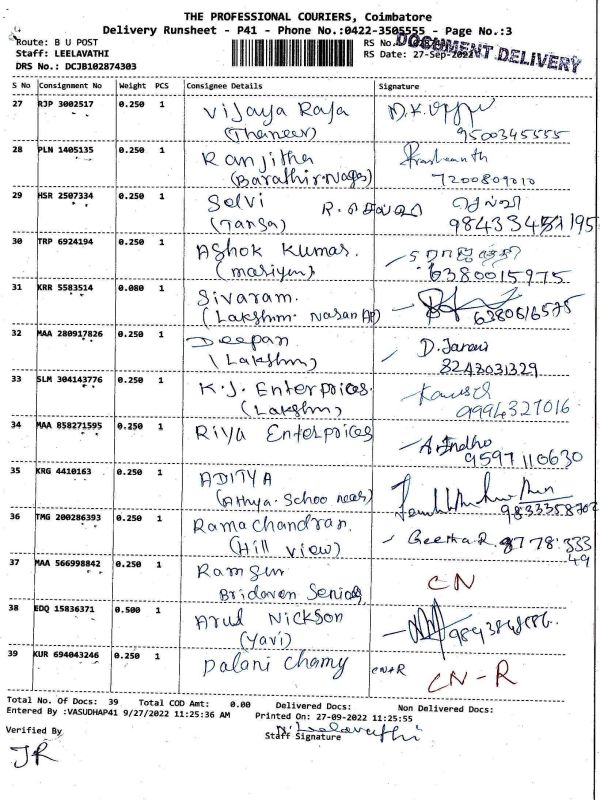 THE PROFESSIONAL COURIERS, Coimbatore
Delivery Runsheet - P41 - Phone No.:0422-3505555 - Page No.:3
Route: B U POST
RS No.
DOCUMENT DELIVERY
Staff: LEELAVATHI
RS Date: 27-Sep-2022
DRS No.: DCJB102874303
S No Consignment No Weight PCS Consignee Details Signature
27 RJP 3002517 0.250 1 Vijaya Raja
(Thaneer) 9500345555
28 PLN 1405135 0.250 1 Ranjitha Prashanth
(Barathir.Nagar) 7200809010
29 HSR 2507334 0.250 1 Selvi
(Tansa) 195
30 TRP 6924194 0.250 1 Ashok Kumar.
(mariyem) 6380015975
31 KRR 5583514 0.080 1 Sivaram.
(Lakshm. Nasan AP) 6380616575
32 MAA 280917826 0.250 1 Deepan D.Jarani
(Lakshm)
33 SLM 304143776 0.250 1 K.J. Enterprices.
(Lakshm) 9994327016
34 MAA 858271595 0.250 1 Riya Enterprices
9597110630
35 KRG 4410163 0.250 1 ADITYA
(Athya. Schoo near) 9833358702
36 TMG 200286393 0.250 1 Ramachandran. Geetha.R. 87778333
(Hill view) 49
37 MAA 566998842 0.250 1 Ramsen CN
Bridaven Senior
38 EDQ 15836371 0.500 1 Arul Nickson
(Yavi)
39 KUR 694043246 0.250 1 Palani Chamy CN+R CN-R
Total No. Of Docs: 39 Total COD Amt: 0.00 Delivered Docs: Non Delivered Docs:
Entered By :VASUDHAP41 9/27/2022 11:25:36 AM Printed On: 27-09-2022 11:25:55
Verified By Staff Signature
JR N.Leelavathi